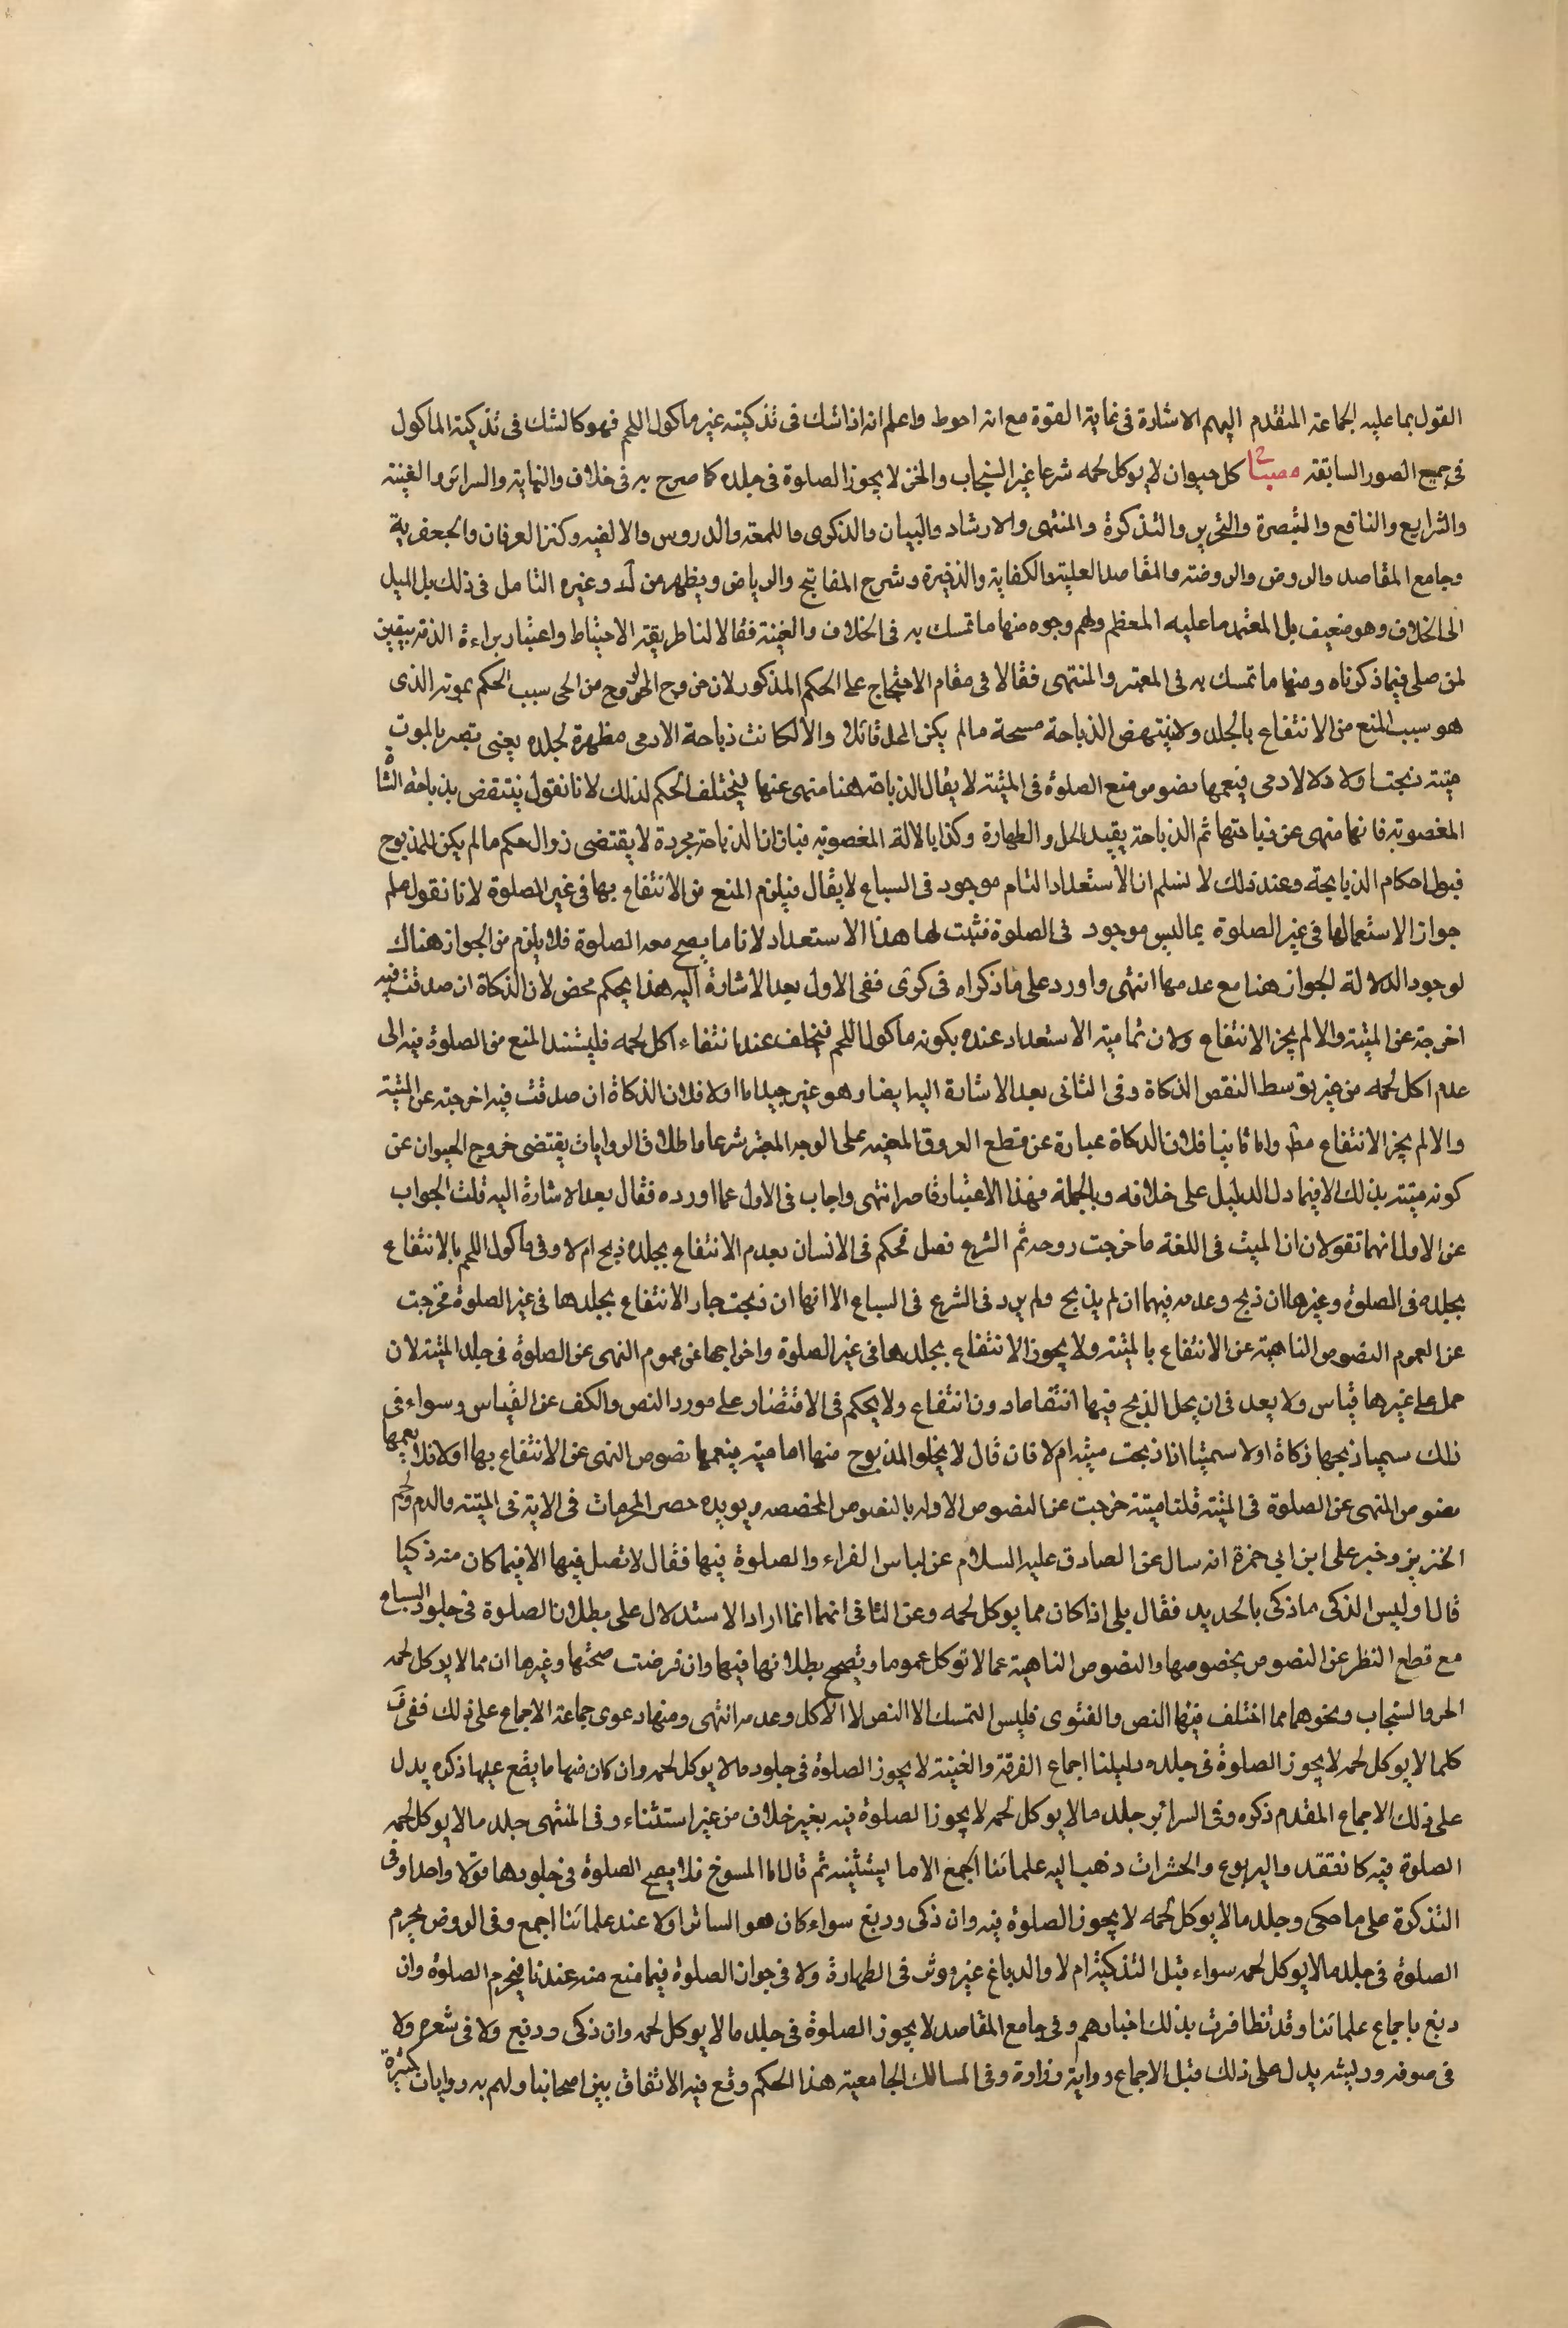 القول بما عليه الجماعة المتقدم اليهم الاشارة فى غاية القوة مع انه احوط واعلم انه اذا شك فى تذكيته غير ماكول اللحم فهو كالشك فى تذكية الماكول
فى جميع الصور السابقة مصباح كل حيوان لا يوكل لحمه شرعا غير السنجاب والخز لا يجوز الصلوة فى جلده كما صرح به فى خلاف والنهاية والسرائر والغنية
والشرايع والنافع والتبصرة والتحرير والتذكرة والمنتهى والارشاد والبيان والذكرى واللمعة والدروس والالفيه وكنز العرفان والجعفرية
وجامع المقاصد والروض والروضة والمقاصد العلية والكفاية والذخيرة وشرح المفاتيح والرياض ويظهر من ك وغيره التامل فى ذلك بل الميل
الى الخلاف وهو ضعيف بل المعتمد ما عليه المعظم ولهم وجوه منها ما تمسك به فى الخلاف والغنية فقالا لنا طريقة الاحتياط واعتبار براءة الذمة بيقين
لمن صلى فيما ذكرناه ومنها ما تمسك به فى المعتبر والمنتهى فقالا فى مقام الاحتجاج على الحكم المذكور لان خروح الروح من الحى سبب الحكم بموته الذى
هو سبب المنع من الانتفاع بالجلد ولا ينتهض الذباحة مسبحة ما لم يكن المحل قابلا والا لكانت ذباحة الادمى مطهرة لجلده يعنى يتميز بالموت
ميتة ذبحت اولا دلا لادمى فيعمها نصوص منع الصلوة فى الميتة لا يقال الذباحة هنا منهى عنها فيختلف الحكم لذلك لانا نقول ينتقض بذباحة الشاة
المغصوبة فانها منهى عن ذباحتها ثم الذباحة يفيد الحل والطهارة وكذا بالالة المغصوبة فبان ان الذباحة مجردة لا يقتضى زوال حكم ما لم يكن للمذبوح
قبول احكام الذبايحة وعند ذلك لا نسلم ان الاستعداد التام موجود فى السباع لا يقال فيلزم المنع من الانتفاع بها فى غير الصلوة لانا نقول علم
جواز الاستعمالها فى غير الصلوة بما ليس موجود فى الصلوة فثبت لها هذا الاستعداد لانا ما يصح معه الصلوة فلا يلزم من الجواز هناك
لوجود الدلالة الجواز هنا مع عدمها انتهى واورد على ما ذكراه فى كرى ففى الاول بعد الاشارة اليه هذا يحكم محض لان الذكاة ان صدقت فيه
اخرجته عن الميتة والا لم يجز الانتفاع ولان تمامية الاستعداد عنده بكونه ماكول اللحم فيتخلف عند انتفاء اكل لحمه فليستند المنع من الصلوة فيه الى
عدم اكل لحمه من غير توسط النقص الذكاة وفى الثانى بعد الاشارة اليه ايضا وهو غير جيد اما اولا فلان الذكاة ان صدقت فيه اخرجته عن الميتة
والا لم يجز الانتفاع مط واما ثانيا فلان الذكاة عبارة عن قطع العروق المعينه على الوجه المعتبر شرعا واطلاق الروايات يقتضى خروج الحيوان عن
كونه ميتة بذلك الا فيما دل الدليل على خلافه وبالجملة فهذا الاعتبار قاصر انتهى واجاب فى الاول عما اورده فقال بعد الاشارة اليه قلت الجواب
عن الاول انهما تقولان ان الميت فى اللغة ما خرجت روحه ثم الشرع فصل فحكم فى الانسان بعدم الانتفاع بجلده ذبح ام لا وفى ماكول اللحم بالانتفاع
بجلده فى الصلوة وغيرها ان ذبح وعدمه فيهما ان لم يذبح ولم يرد فى الشرع فى السباع الا انها ان ذبحت جاز الانتفاع بجلدها فى غير الصلوة فخرجت
عن العموم النصوص الناهية عن الانتفاع بالميتة ولا يجوز الانتفاع بجلدها فى غير الصلوة واخراجها عن عموم النهى عن الصلوة فى جلد الميتة لان
حمل على غيرها قياس ولا بعد فى ان يحل الذبح فيها انتفاعا دون انتفاع ولا يحكم فى الاقتصار على مورد النص والكف عن القياس وسواء فى
ذلك سميا ذبحها ذكاة اولا سميتا اذا ذبحت ميتة ام لا فان قال لا يخلو المذبوح منها اما ميتة فيعمها نصوص النهى عن الانتفاع بها او لا فلا يعمها
نصوص النهى عن الصلوة فى الميتة قلنا ميتة خرجت عن النصوص الاوله بالنصوص المخصصه ويويده حصر المحرمات فى الاية فى الميتة والدم ولحم
الخنزير وخبر على ابن ابى حمزة انه سال عن الصادق عليه السلام عن لباس الفراء والصلوة فيها فقال لا تصل فيها الا فيما كان منه ذكيا
قال اوليس الذكى ما ذكى بالحديد فقال بلى اذا كان مما يوكل لحمه وعن الثانى انهما انما ارادا الاستدلال على بطلان الصلوة فى جلود السباع
مع قطع النظر عن النصوص بخصوصها والنصوص الناهية عما لا توكل عموما ويصح بطلانها فيها وان فرضت صحتها وغيرها ان مما لا يوكل لحمه
الحر والسنجاب ونحوهما مما اختلف فيها النص والفتوى فليس التمسك الا النص لا الاكل وعدمه انتهى ومنها دعوى جماعة الاجماع على ذلك ففى ف
كلما لا يوكل لحمه لا يجوز الصلوة فى جلده دليلنا اجماع الفرقة والغنية لا يجوز الصلوة فى جلود ما لا يوكل لحمه وان كان فيها ما يقع عليها ذكره يدل
على ذلك الاجماع المقدم ذكره وفى السرائر جلد ما لا يوكل لحمه لا يجوز الصلوة فيه بغير خلاف من غير استثناء وفى المنتهى جلد ما لا يوكل لحمه
الصلوة فيه كانفقد واليربوع والحشرات ذهب اليه علمائنا اجمع الا ما ليستثنيه ثم قال اما المسوخ فلا يصح الصلوة فى جلودها قولا واحدا وفى
التذكرة على ما حكى وجلد ما لا يوكل لحمه لا يجوز الصلوة فيه وان ذكى ودبغ سواء كان هو الساتر اولا عند علمائنا اجمع وفى الروض يحرم
الصلوة فى جلد ما لا يوكل لحمه سواء قبل التذكية ام لا والدباغ غير موثر فى الطهارة ولا فى جواز الصلوة فيما منع منه عندنا فيحرم الصلوة وان
دبغ باجماع علمائنا وقد تظافرت بذلك اخبارهم وفى جامع المقاصد لا يجوز الصلوة فى جلد ما لا يوكل لحمه وان ذكى ودبغ ولا فى شعره ولا
فى صوفه وريشه يدل على ذلك قبل الاجماع رواية زرارة وفى المسالك الجامعية هذا الحكم وقع فيه الاتفاق بين اصحابنا ولهم به روايات كثيرة